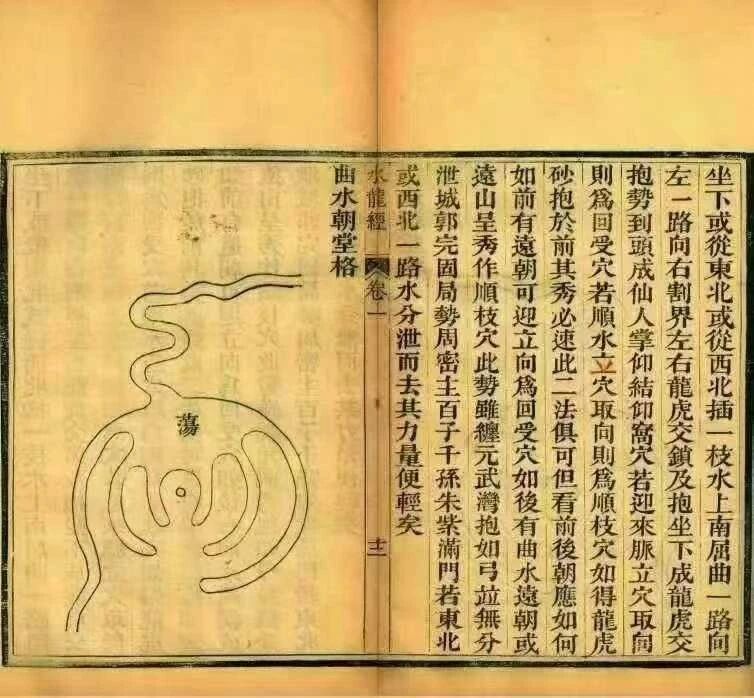 坐下或從東北或從西北插一枝水上南屈曲一路向
左一路向右割界左右龍虎交鎖及抱坐下成龍虎交
抱勢到頭成仙人掌仰結仰窩穴若迎來脈立穴取向
則爲回受穴若順水立穴取向則爲順枝穴如得龍虎
砂抱於前其秀必速此二法俱可但看前後朝應如何
如前有遠朝可迎立向爲回受穴如後有曲水遠朝或
遠山呈秀作順枝穴此勢雖纏元武灣抱如弓竝無分
泄城郭完固局勢周密主百子千孫朱紫滿門若東北
或西北一路水分泄而去其力量便輕矣
水龍經 卷一 十二
曲水朝堂格
蕩